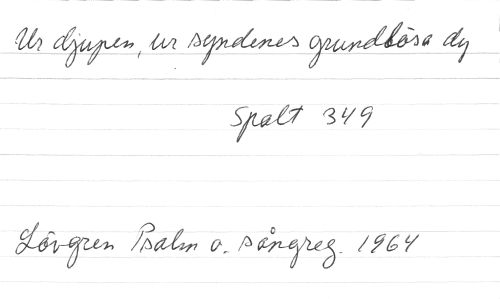 Ur djupen, ur syndenes grundlösa dy
Spalt 349
Lövgren Psalm o. sångreg. 1964